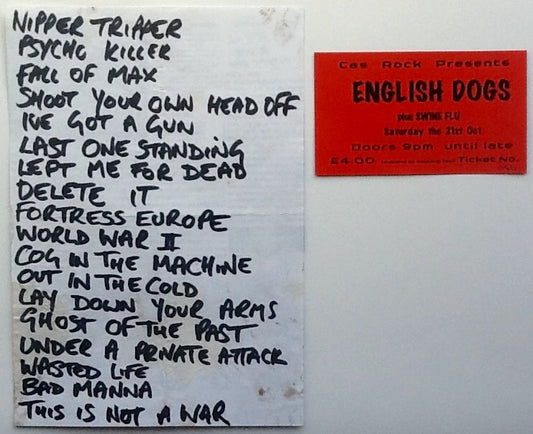 NIPPER TRIPPER
PSYCHO KILLER
FALL OF MAX
SHOOT YOUR OWN HEAD OFF
IVE GOT A GUN
LAST ONE STANDING
LEFT ME FOR DEAD
DELETE IT
FORTRESS EUROPE
WORLD WAR II
COG IN THE MACHINE
OUT IN THE COLD
LAY DOWN YOUR ARMS
GHOST OF THE PAST
UNDER A PRIVATE ATTACK
WASTED LIFE
BAD MANNA
THIS IS NOT A WAR
Cas Rock Presents
ENGLISH DOGS
plus SWINE FLU
Saturday the 21st Oct
Doors 9pm until late
£4.00 Ticket No.